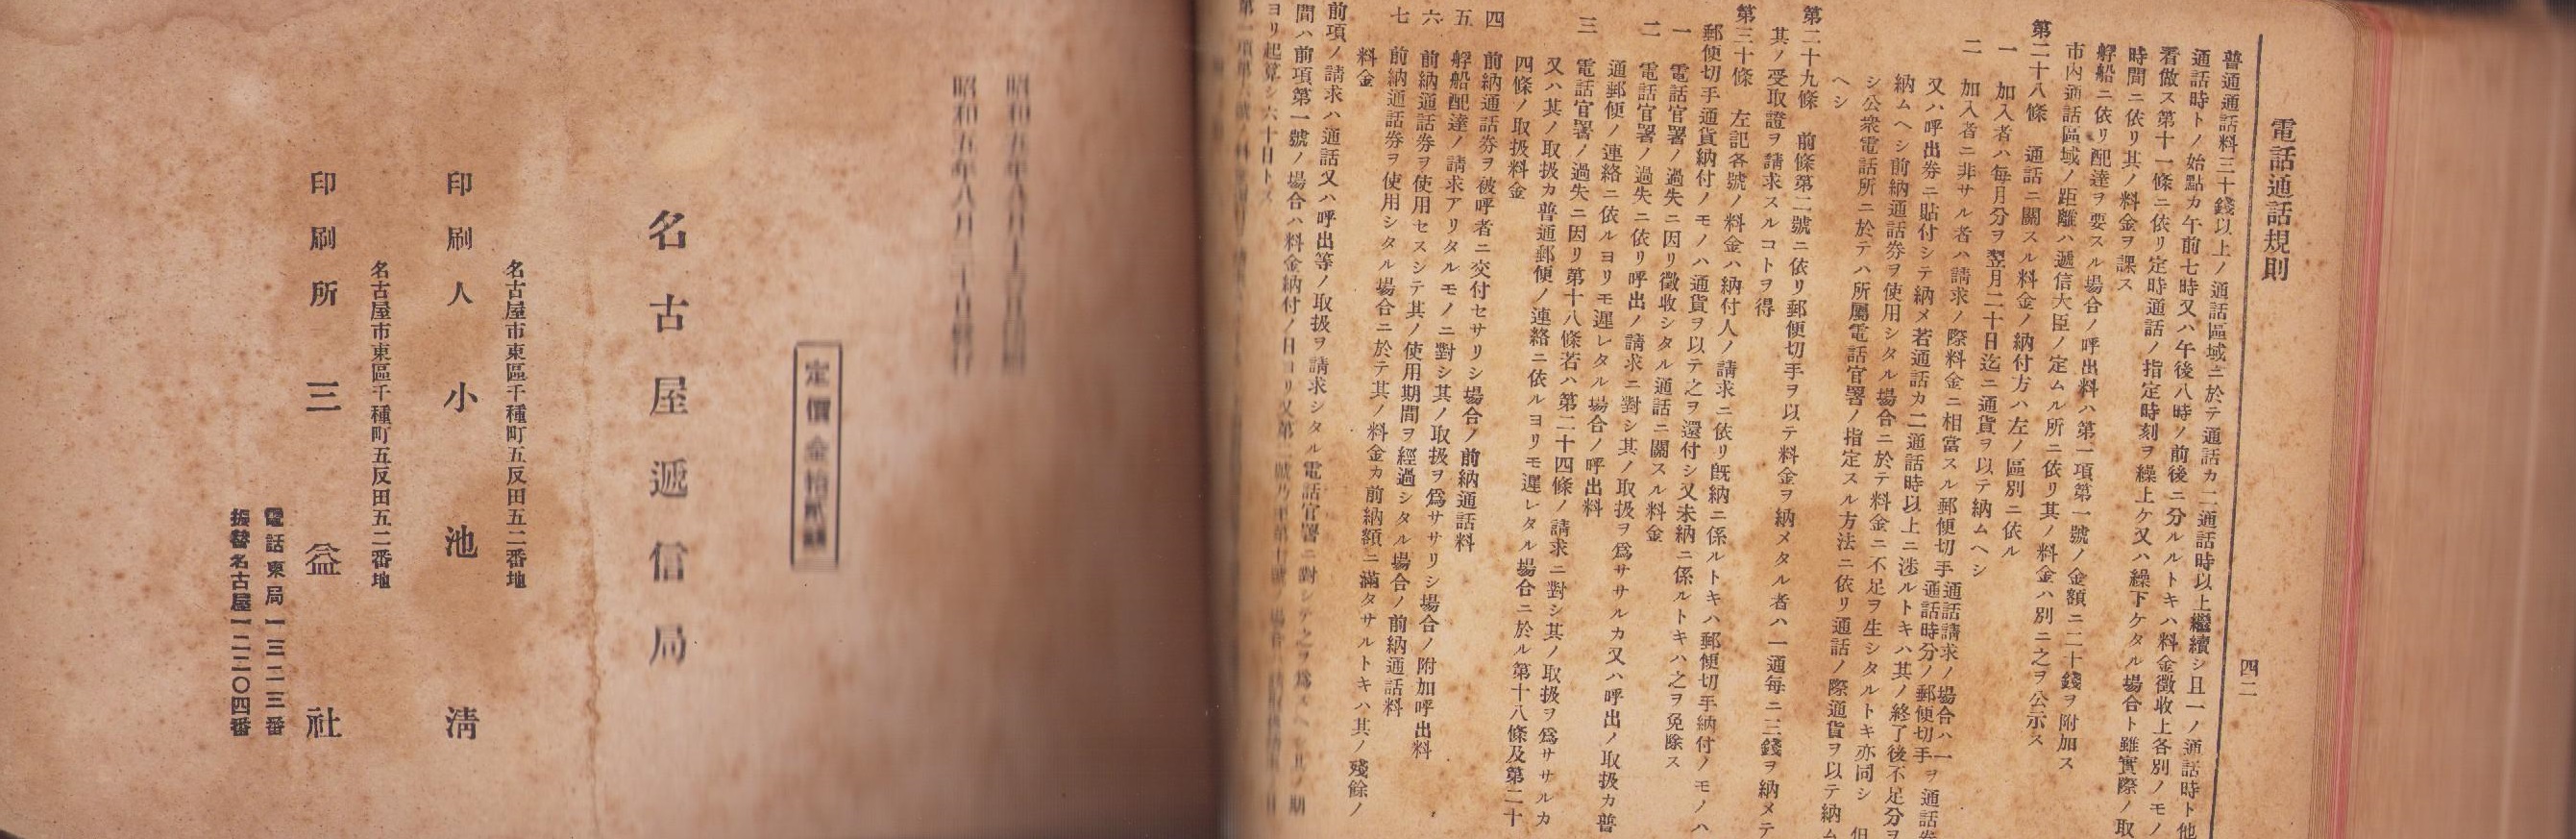 電話通話規則
四二
普通通話料三十錢以上ノ通話區域ニ於テ通話カ二通話時以上繼續シ且一ノ通話時ト他
通話時トノ始點カ午前七時又ハ午後八時ノ前後ニ分ルルトキハ料金徵收上各別ノモノ
看做ス第十一條ニ依リ定時通話ノ指定時刻ヲ繰上ケ又ハ繰下ケタル場合ト雖實際ノ取
時間ニ依リ其ノ料金ヲ課ス
艀船ニ依リ配達ヲ要スル場合ノ呼出料ハ第一項第一號ノ金額ニ二十錢ヲ附加ス
市內通話區域ノ距離ハ遞信大臣ノ定ムル所ニ依リ其ノ料金ハ別ニ之ヲ公示ス
第二十八條 通話ニ關スル料金ノ納付方ハ左ノ區別ニ依ル
一 加入者ハ每月分ヲ翌月二十日迄ニ通貨ヲ以テ納ムヘシ
二 加入者ニ非サル者ハ請求ノ際料金ニ相當スル郵便切手
通話請求ノ場合ハ一
通話時分ノ郵便切手
ヲ通話
又ハ呼出券ニ貼付シテ納メ若通話カ二通話時以上ニ涉ルトキハ其ノ終了後不足分ヲ
納ムヘシ前納通話券ヲ使用シタル場合ニ於テ料金ニ不足ヲ生シタルトキ亦同シ 但
シ公衆電話所ニ於テハ所屬電話官署ノ指定スル方法ニ依リ通話ノ際通貨ヲ以テ納ム
ヘシ
第二十九條 前條第二號ニ依リ郵便切手ヲ以テ料金ヲ納メタル者ハ一通每ニ三錢ヲ納メテ
其ノ受取證ヲ請求スルコトヲ得
第三十條 左記各號ノ料金ハ納付人ノ請求ニ依リ旣納ニ係ルトキハ郵便切手納付ノモノハ
郵便切手通貨納付ノモノハ通貨ヲ以テ之ヲ還付シ又未納ニ係ルトキハ之ヲ免除ス
一 電話官署ノ過失ニ因リ徵收シタル通話ニ關スル料金
二 電話官署ノ過失ニ依リ呼出ノ請求ニ對シ其ノ取扱ヲ爲ササルカ又ハ呼出ノ取扱カ普
通郵便ノ連絡ニ依ルヨリモ遲レタル場合ノ呼出料
三 電話官署ノ過失ニ因リ第十八條若ハ第二十四條ノ請求ニ對シ其ノ取扱ヲ爲ササルカ
又ハ其ノ取扱カ普通郵便ノ連絡ニ依ルヨリモ遲レタル場合ニ於ル第十八條及第二十
四條ノ取扱料金
四 前納通話券ヲ被呼者ニ交付セサリシ場合ノ前納通話料
五 艀船配達ノ請求アリタルモノニ對シ其ノ取扱ヲ爲ササリシ場合ノ附加呼出料
六 前納通話券ヲ使用セスシテ其ノ使用期間ヲ經過シタル場合ノ前納通話料
七 前納通話券ヲ使用シタル場合ニ於テ其ノ料金カ前納額ニ滿タサルトキハ其ノ殘餘ノ
料金
前項ノ請求ハ通話又ハ呼出等ノ取扱ヲ請求シタル電話官署ニ對シテ之ヲ爲スヘ
間ハ前項第一號ノ場合ハ料金納付ノ日ヨリ又第
ヨリ起算シ六十日トス
昭和五年八月
昭和五年八月二十日發行
定價金拾貳錢
名古屋遞信局
名古屋市東區千種町五反田五二番地
印刷人 小池淸
名古屋市東區千種町五反田五二番地
印刷所 三益社
電話東局一三二三番
振替名古屋一二二〇四番